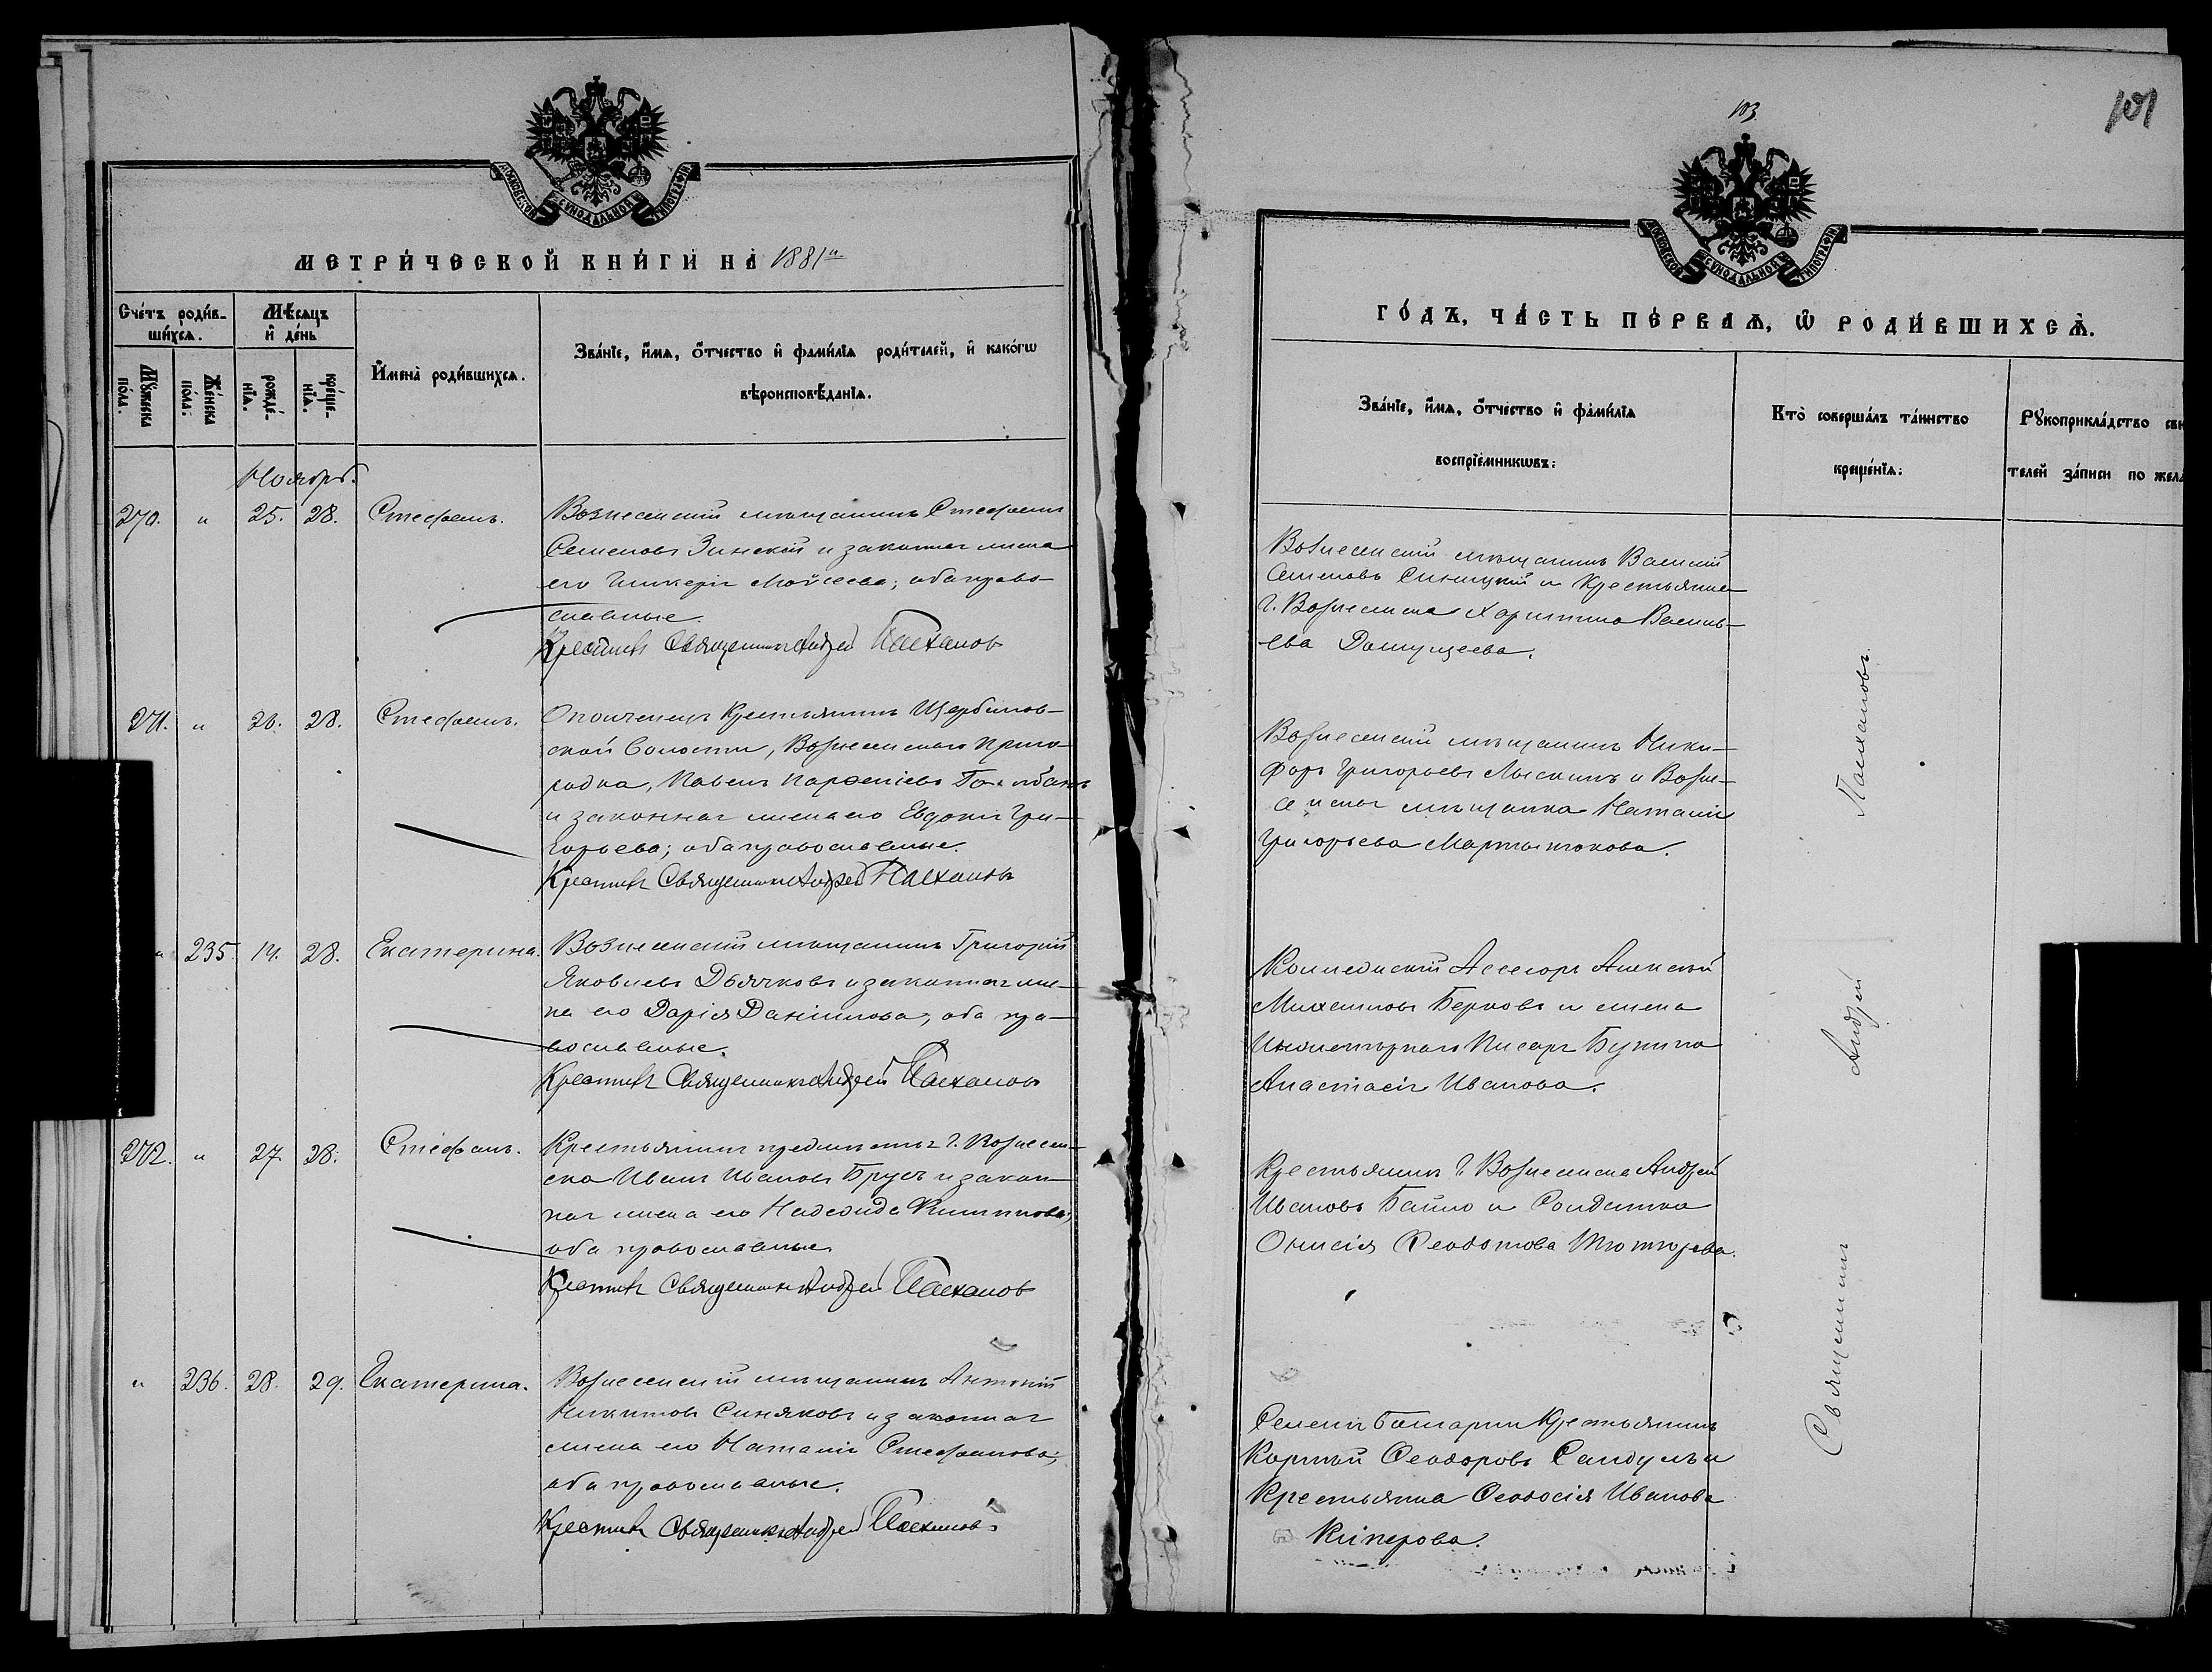 МОСКОВСКОЙ СѴНОДАЛЬНОЙ ТИПОГРАФІИ
МЕТРИ́ЧЕСКОЙ КНИ́ГИ НА̀ 1881й
Сче́тъ роди́в-
ши́хсѧ.
Мѣ́сѧцъ
и҆ де́нь
И҆мена̀ роди́вшихсѧ.
Зва́нїе, и҆́мѧ, ѻ҆́тчество и҆ фами́лїѧ роди́телей, и҆ како́гѡ
вѣроисповѣ́данїѧ.
Мꙋ́жеска
по́ла.
Же́нска
по́ла.
рожде́-
нїѧ.
креще́-
нїѧ.
Ноябрь.
270. " 25. 28. Стефанъ.
Вознесенскій мѣщанинъ Стефанъ
Семеновъ Зинскій и законная жена
его Гликерія Моисеева; оба право-
славные.
Крестилъ Священникъ Андрей Пасхаловъ
271. " 26. 28. Стефанъ.
Ополченецъ Крестьянинъ Щербанов-
ской Волости, Вознесенскаго Приго-
родка, Павелъ Парѳеніевъ
и законная жена его Евдокія Гри-
горьева; оба православные.
Крестилъ Священникъ Андрей Пасхаловъ
" 235. 28. Екатерина.
Вознесенскій мѣщанинъ Григорій
Яковлевъ Дьячковъ и законная же-
на его Дарія Даніилова, оба пра-
вославные.
Крестилъ Священникъ Андрей Пасхаловъ
272. " 27. 28. Стефанъ.
Крестьянинъ предмѣстья г. Вознесен-
ска Иванъ Ивановъ Брусъ и закон-
ная жена его Надежда Филиппова;
оба православные
Крестилъ Священникъ Андрей Пасхаловъ
" 236. 28. 29. Екатерина.
Вознесенскій мѣщанинъ Антоній
Никитовъ Синяковъ и законная
жена его Наталія Стефанова;
оба православные.
Крестилъ Священникъ Андрей Пасхаловъ
103.
101
МОСКОВСКОЙ СѴНОДАЛЬНОЙ ТИПОГРАФІИ
ГО́ДЪ, ЧА́СТЬ ПЕ́РВАѦ, Ѡ҆ РОДИ́ВШИХСѦ̀.
Зва́нїе, и҆́мѧ, ѻ҆́тчество и҆ фами́лїѧ
воспрїе́мникѡвъ:
Кто̀ соверша́лъ та́инство
креще́нїѧ:
Рꙋкоприкла́дство сви
телей за́писи по жела
Вознесенскій мѣщанинъ Василій
Семеновъ Синицкій и Крестьянка
г. Вознесенска Харитина Василь-
ева
Вознесенскій мѣщанинъ Ники-
форъ Григорьевъ Лыскинъ и Возне-
сенская мѣщанка Наталія
Григорьева Мартынюкова.
Коллежскій Асесоръ Алексѣй
Михаиловъ Берковъ и жена
Инженернаго Писаря Бунина
Анастасія Иванова.
Крестьянинъ г. Вознесенска Андрей
Ивановъ Байло и Солдатка
Онисія Ѳеодотова
Селенія Болгарки Крестьянинъ
Корнѣй Ѳеодоровъ Сандулъ и
Крестьянка Ѳеодосія Иванова
Киперова.
Священникъ Андрей Пасхаловъ